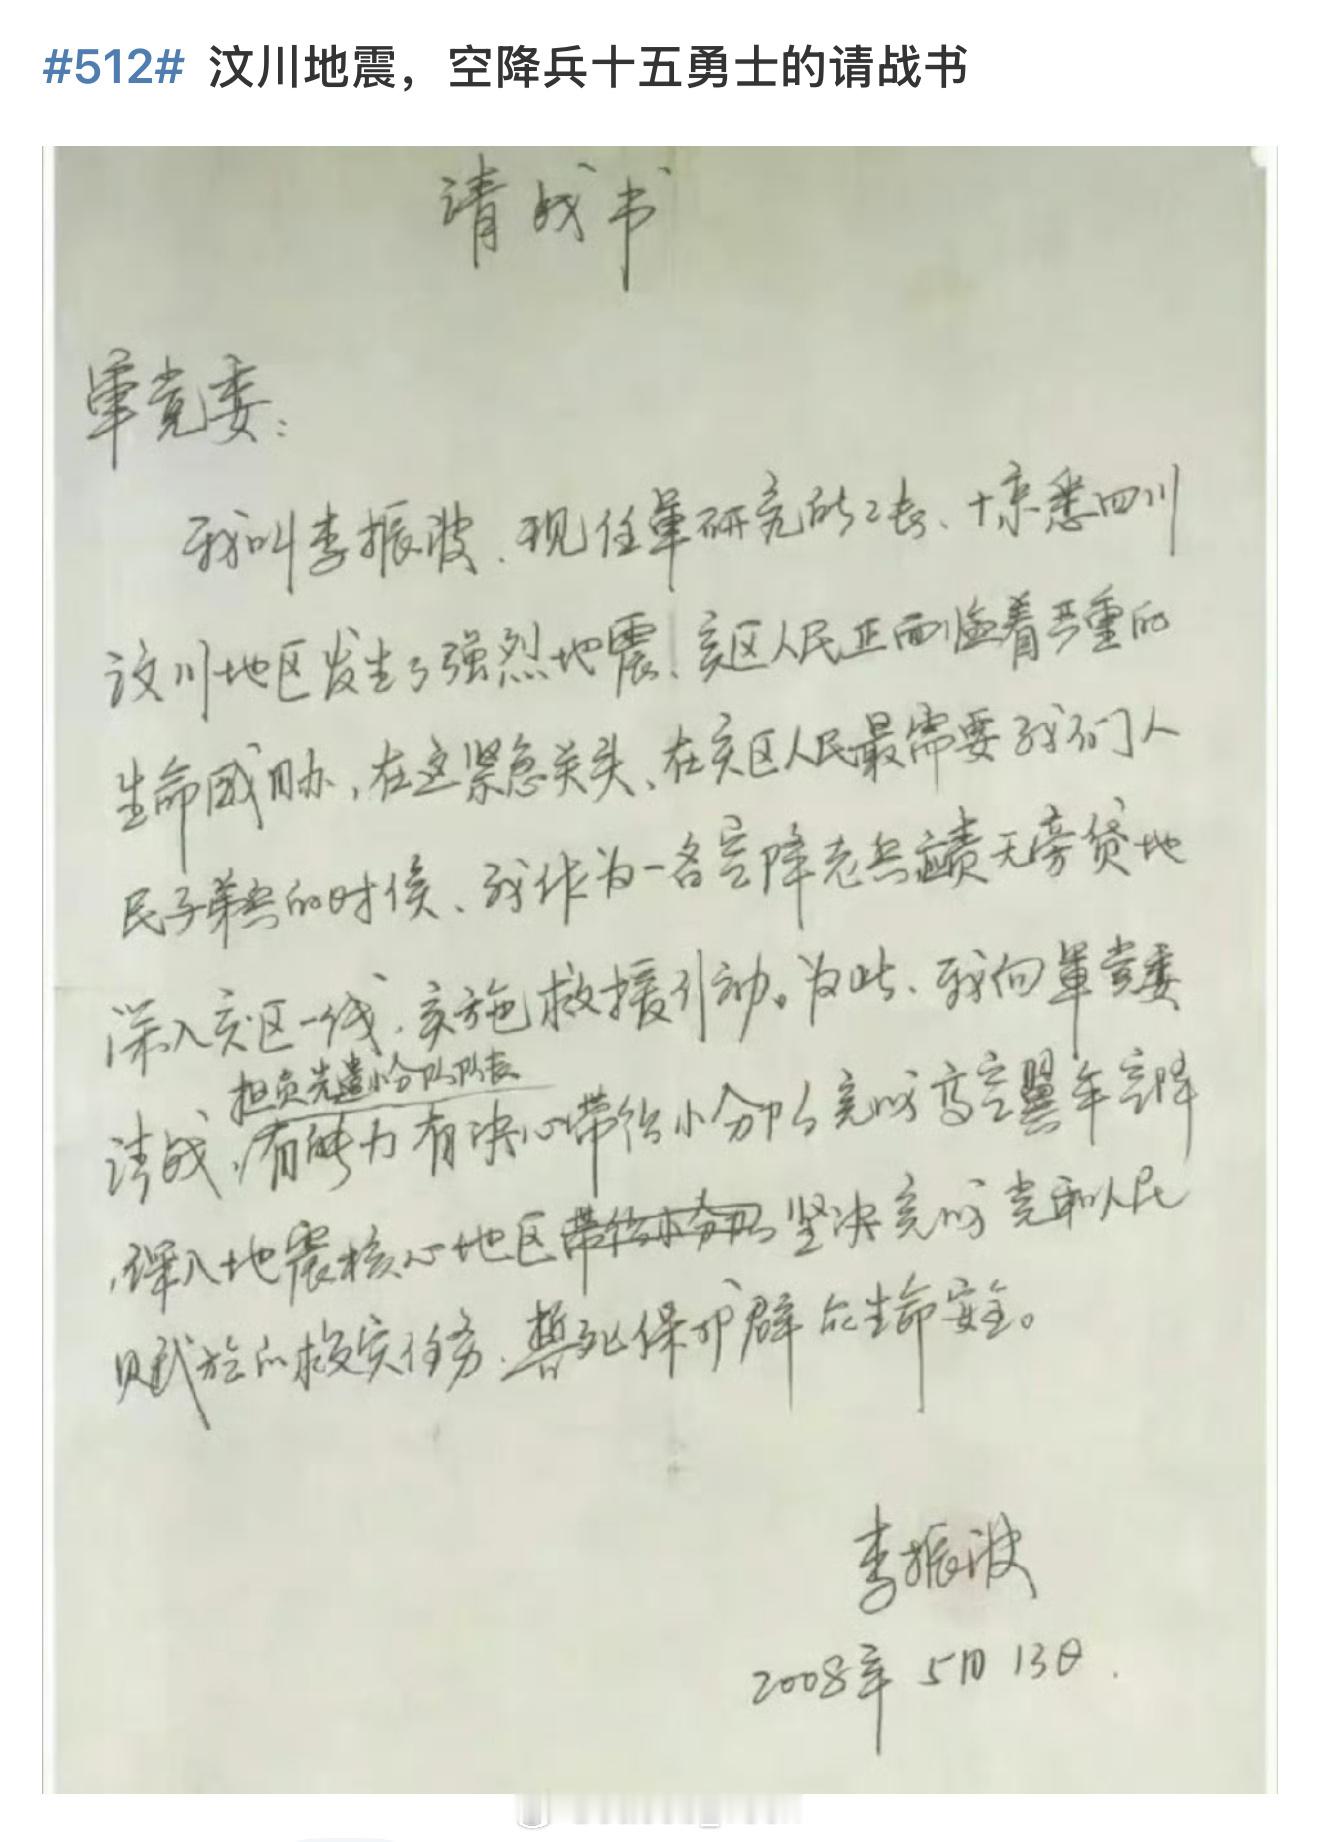 #512# 汶川地震，空降兵十五勇士的请战书
请战书
军党委：
我叫李振波、现任军研究所所长、惊悉四川
汶川地区发生了强烈地震、灾区人民正面临着严重的
生命威胁，在这紧急关头、在灾区人民最需要我们人
民子弟兵的时候、我作为一名空降老兵责无旁贷地
深入灾区一线，实施救援行动。为此、我向军党委
担负先遣小分队队长
请战，有能力有决心带领小分队完成高空翼伞空降
，深入地震核心地区带领小分队坚决完成党和人民
赋于的救灾任务，誓死保护群的生命安全。
李振波
2008年5月13日.